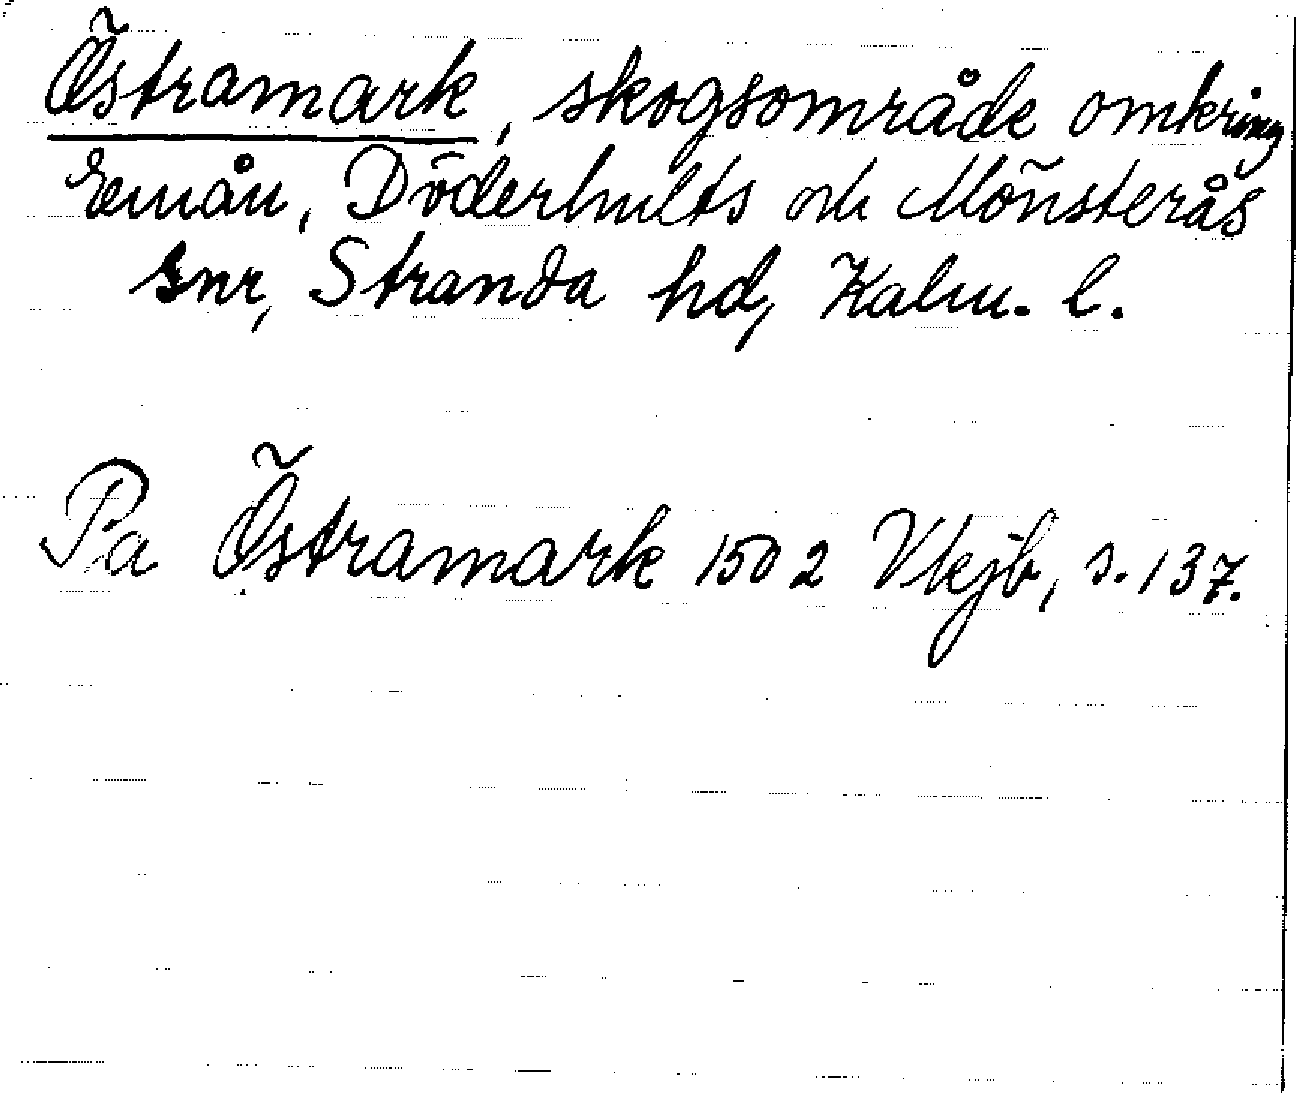 Östramark, skogsområde omkring
Emån, Döderhults och Mönsterås
snr, Stranda hd, Kalm. l.
Pa Östramark 1502 Vkjb, s. 137.